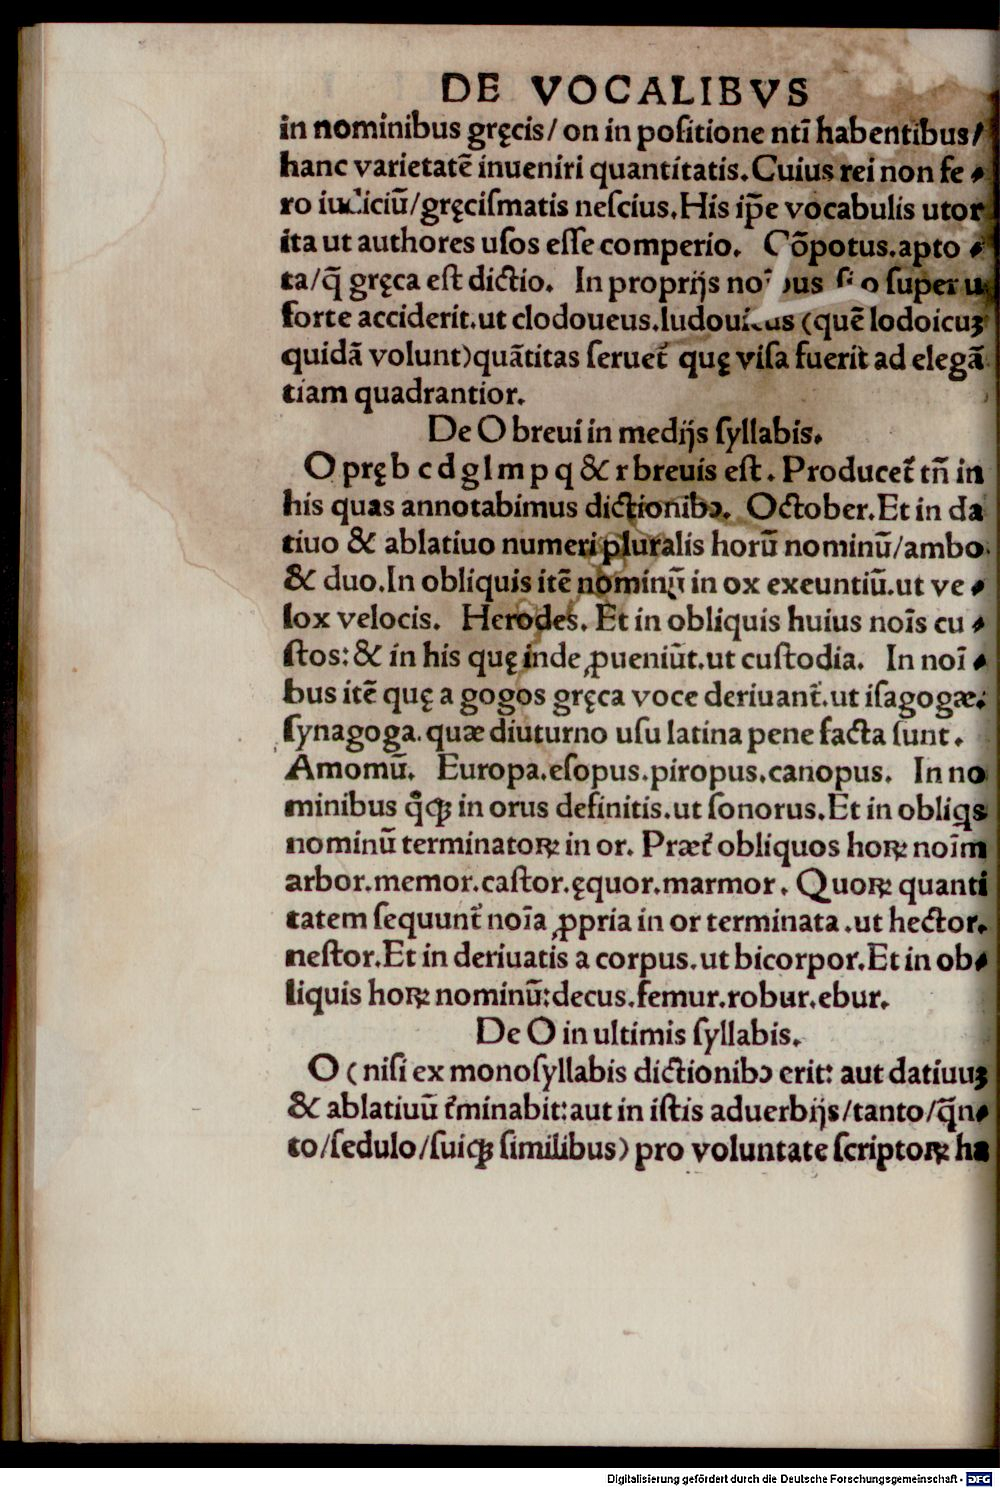 DE VOCALIBVS
in nominibus gręcis/ on in poſitione ntī habentibus/
hanc varietatē inueniri quantitatis. Cuius rei non fe⸗
ro iudiciū/gręciſmatis neſcius. His ip̄e vocabulis utor
ita ut authores uſos eſſe comperio. Cōpotus.apto⸗
ta/q̄ gręca eſt dictio. In proprijs ſuper
forte acciderit.ut clodoueus.ludouicus (quē lodoicuꝫ
quidā volunt)quātitas ſeruet᷑ quę viſa fuerit ad elegā
tiam quadrantior.
De O breui in medijs ſyllabis.
O pręb c d g l m p q & r breuis eſt. Producet᷑ tñ in
his quas annotabimus dictionibꝰ. October.Et in da
tiuo & ablatiuo numeri pluralis horū nominū/ambo
& duo.In obliquis itē nominū in ox exeuntiū.ut ve⸗
lox velocis. Herodes. Et in obliquis huius noīs cu⸗
ſtos:& in his quę inde ꝓueniūt.ut cuſtodia. In noī⸗
bus itē quę a gogos gręca voce deriuant᷑.ut iſagogæ:
ſynagoga.quæ diuturno uſu latina pene facta ſunt.
Amomū. Europa.eſopus.piropus.canopus. In no
minibus q̊qꝫ in orus definitis.ut ſonorus.Et in obliqs
nominū terminatoꝝ in or. Præt᷑ obliquos hoꝝ noīm
arbor.memor.caſtor.ęquor.marmor. Quoꝝ quanti
tatem ſequunt᷑ noīa ꝓpria in or terminata.ut hector.
neſtor.Et in deriuatis a corpus.ut bicorpor.Et in ob⸗
liquis hoꝝ nominū:decus.femur.robur.ebur.
De O in ultimis ſyllabis.
O (niſi ex monoſyllabis dictionibꝰ erit: aut datiuuꝫ
& ablatiuū t᷑minabit:aut in iſtis aduerbijs/tanto/q̄n⸗
to/ſedulo/ſuiqꝫ ſimilibus) pro voluntate ſcriptoꝝ ha
Digitalisierung gefördert durch die Deutsche Forschungsgemeinschaft - DFG